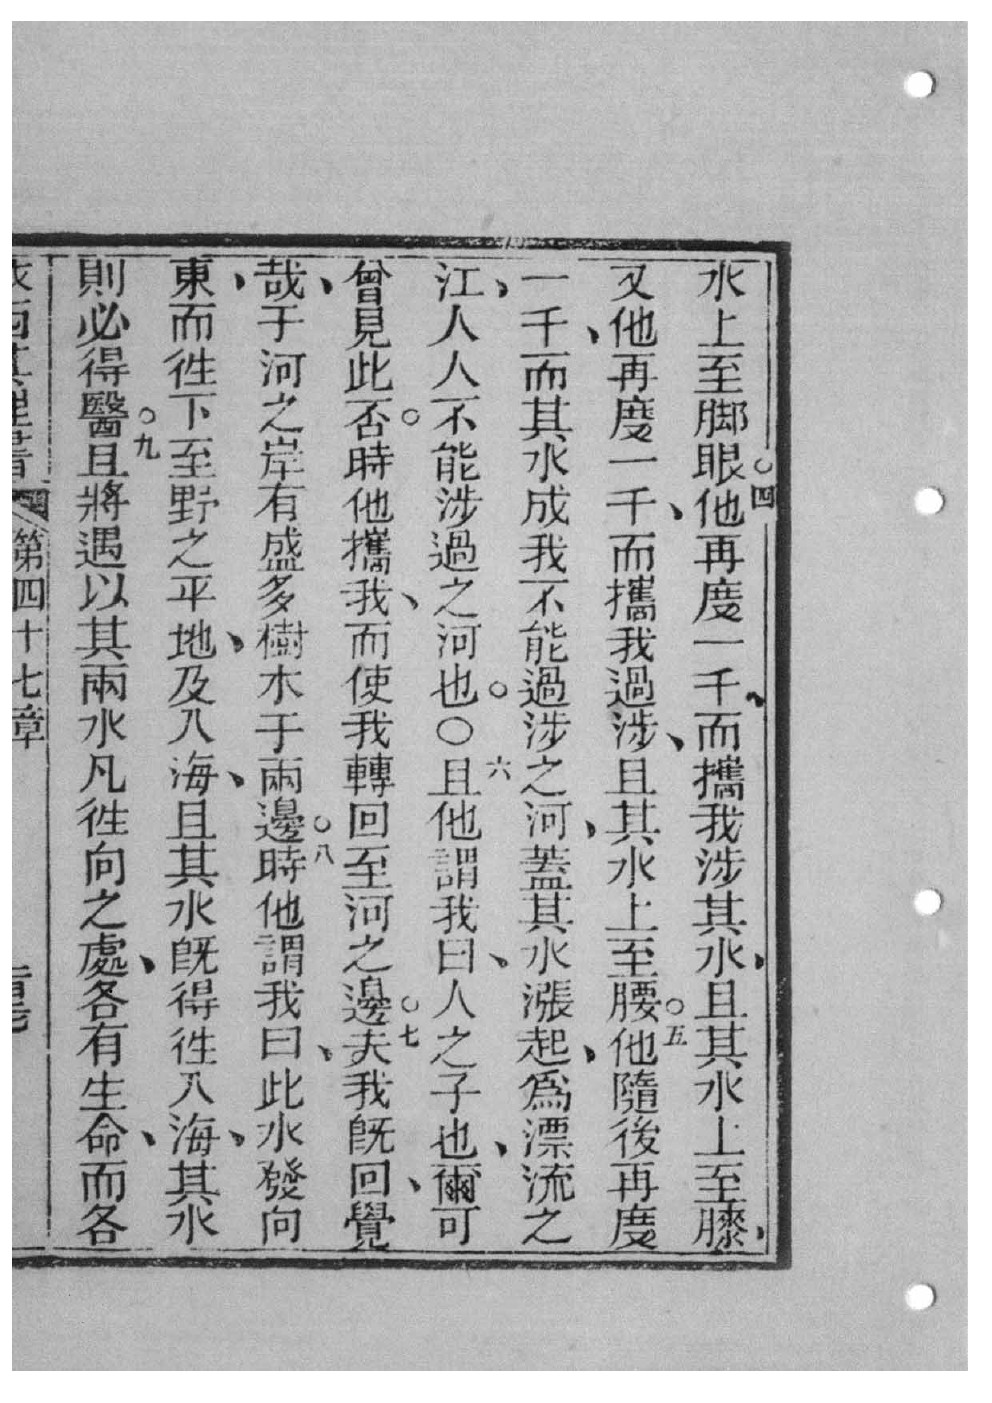 水上至脚眼○四他再度一千、而攜我涉其水、且其水上至膝、
又他再度一千、而攜我過涉、且其水上至腰○五他隨後再度
一千、而其水成我不能過涉之河、蓋其水漲起、爲漂流之
江、人人不能涉過之河也。○六且他謂我曰、人之子也、爾可
曾見此否。時他攜我、而使我轉回至河之邊○七夫我旣回、覺
哉、于河之岸有盛多樹木于兩邊○八時他謂我曰、此水發向
東、而徃下至野之平地、及入海、且其水旣得徃入海、其水
則必得醫○九且將遇以其兩水凡徃向之處、各有生命、而各
第四十七章